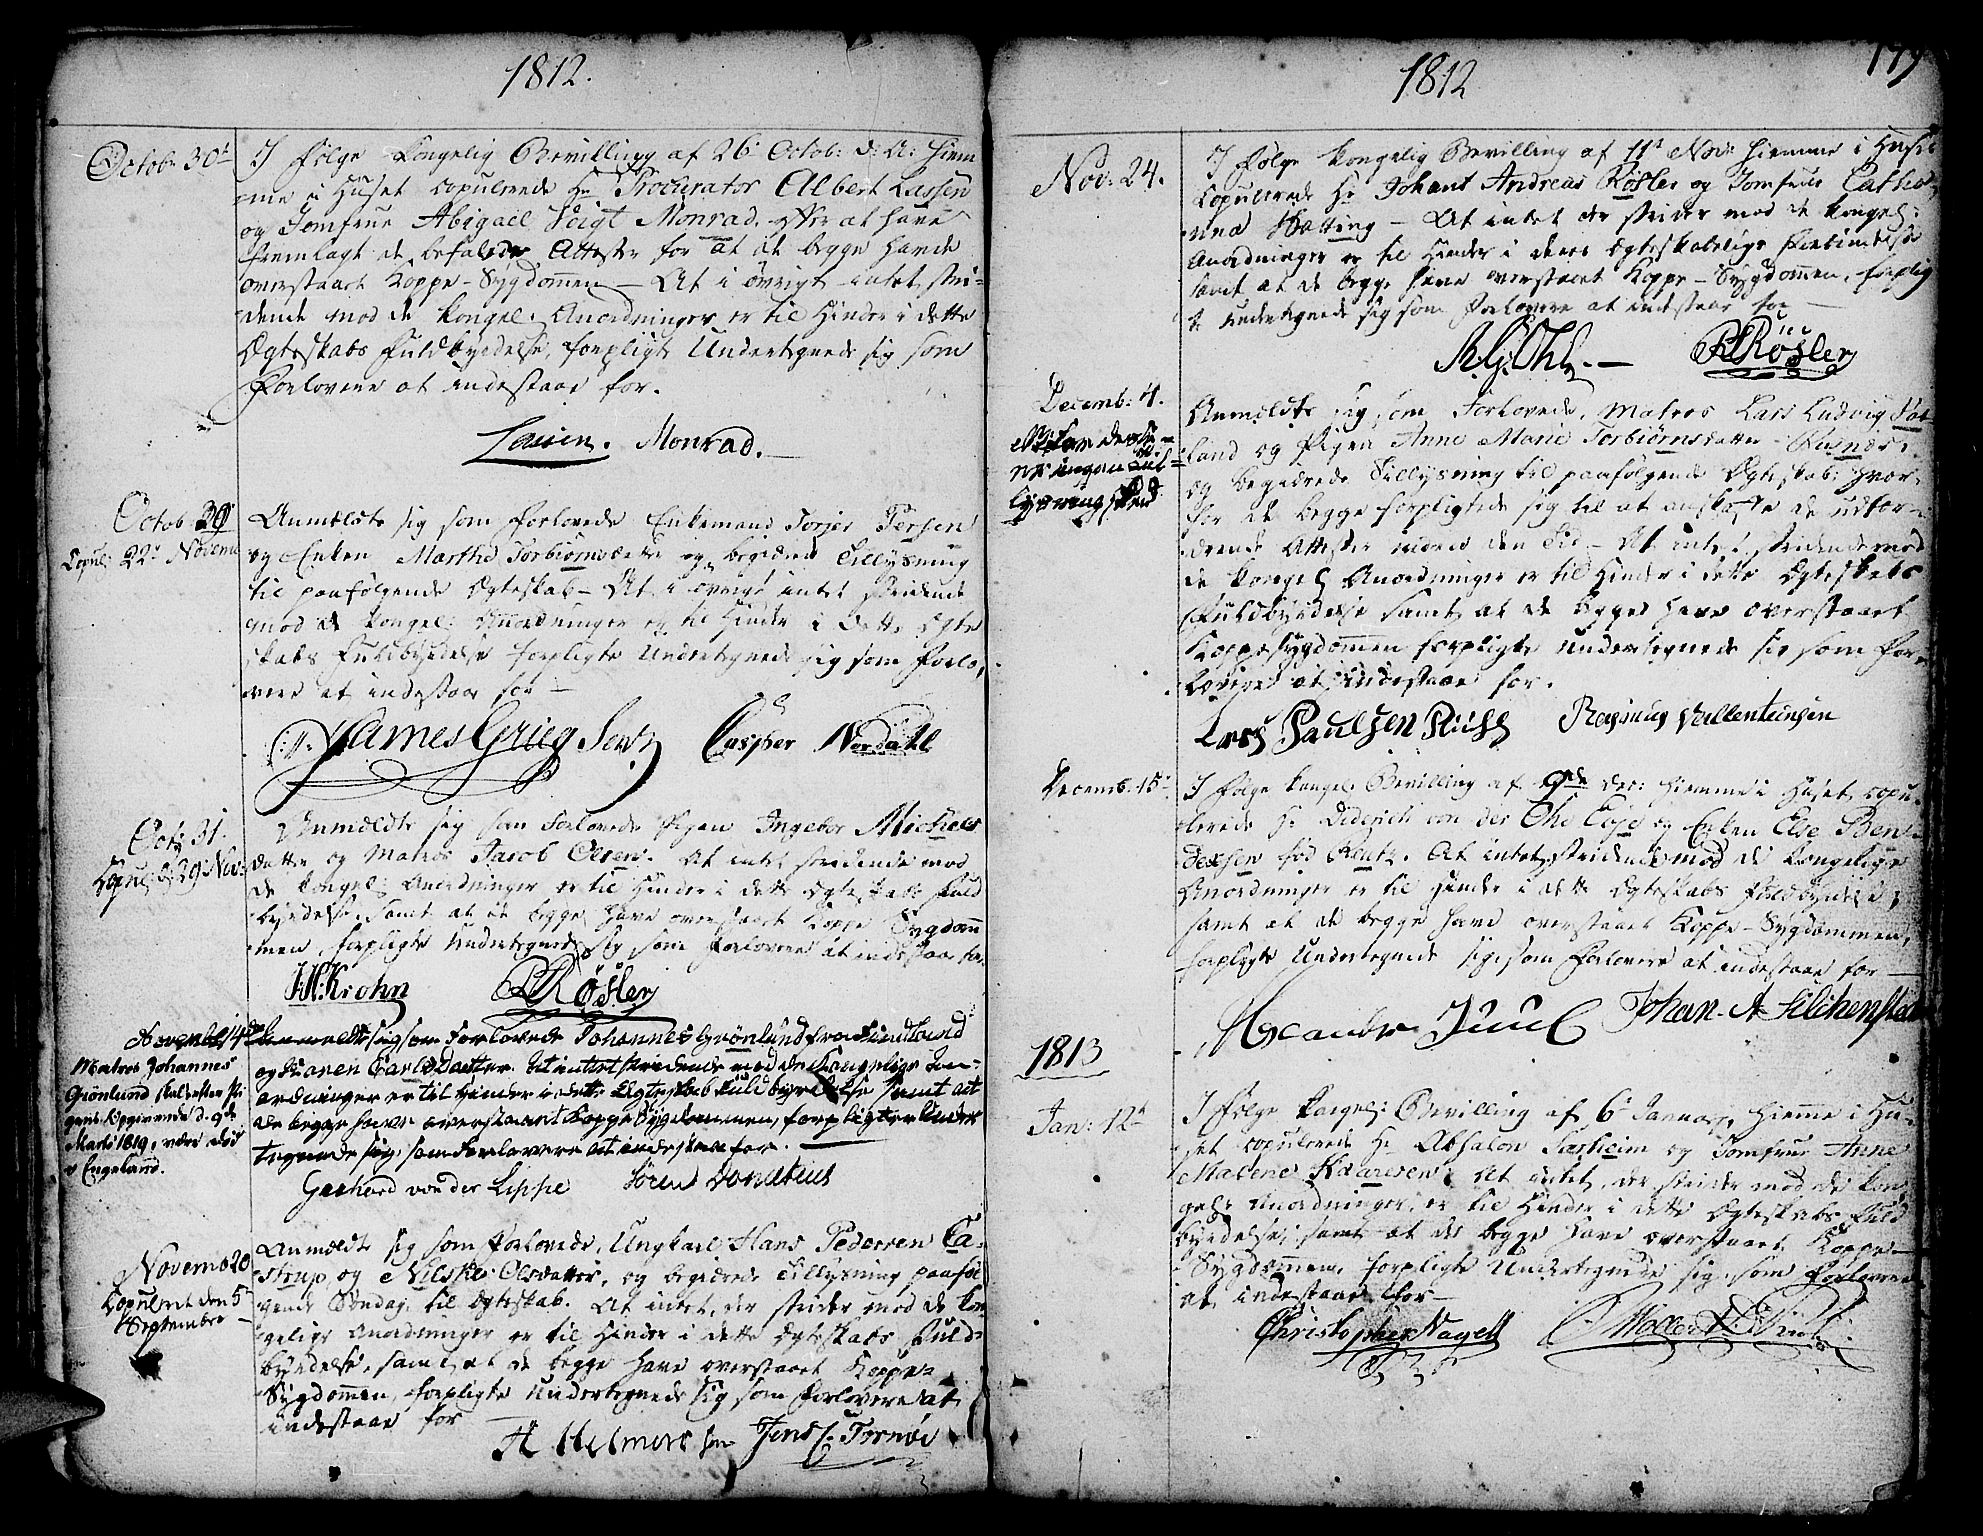 1812.
Octob: 30t
I Følge Kongelig Bevilling af 26 Octob: d: A: hiem-
me i Huset copulerede Hr Procurator Albert Lassen
og Jomfrue Abigael Voigt Monrad, efter at have
fremlagt de befalede Attester for at de begge havde
overstaaet Koppe-Sygdommen — At i øvrigt intet stri-
dende mod de kongel: Anordninger er til Hinder i dette
Ægteskabs Fuldbyrdelse, forpligte Undertegnede sig som
Forlovere at indestaae for.
Lassen. Monrad.
Octob 30
Copul: 22 Novemb
Anmeldte sig som Forlovede Enkemand Torjer Persen
og Enken Marthe Torbiørnsdatter og begierede Tillysning
til paafølgende Ægteskab — At i øvrigt intet stridende
mod de kongel: Anordninger er til Hinder i dette Ægte
skabs Fuldbyrdelse forpligte Undertegnede sig som Forlo-
vere at indestaae for —
James Grieg Senr Casper Nordahl
Octr 31.
Copul: d 29 Nov:
Anmeldte sig som Forlovede Pigen Ingebor Michels
datter og Matros Jacob Olsen. At intet stridende mod
de kongel: Anordninger er til Hinder i dette Ægteskabs Fuld
byrdelse, samt at de begge have overstaaet Koppe Sygdom
men, forpligte Undertegnede sig som Forlovere at indestaae for.
H Krohn Røsler
November 14de
Anmeldte sig som Forlovede Johannes Grønlund fra Findland
og Karen Carlsdatter. At intet stridende mod de Kongelige An-
ordninger er til Hinder i dette Ægteskab Fuldbyrdelse samt at
de begge have overstaaet Koppe Sygdommen, forpligter Under
tegnede sig som Forlovere at indestaae for.
Matros Johannes
Grønlund skal efter Pi
gens Opgivende d. 9de
Marti 1819, være død
i Engeland.
Gerhard von der Lippe Søren
Novemb 20
Copuleret den 5
Septembr
Anmeldte sig som Forlovede, Ungkarl Hans Pedersen Ta-
strup og Nilske Olsdatter, og begierede Tillysning paaføl
gende Søndag til Ægteskab. At intet, der strider mod de kon
gelige Anordninger er til Hinder i dette Ægteskabs Fuld-
byrdelse, samt at de begge have overstaaet Koppe-
Sygdommen, forpligte Undertegnede sig som Forlovere at
indestaae for
H Helmers Jens C. Tornøe
179
1812
Nov: 24.
I Følge kongelig Bevilling af 11t Nov: hiemme i Huset
copulerede Hr Johant Andreas Røsler og Jomfrue Catha
rina Hatting — At intet der strider mod de kongel:
Anordninger er til Hinder i deres Ægteskabelige Forbindelse
samt at de begge have overstaaet Koppe-Sygdommen, forplig
te Undertegnede sig som Forlovere at indestaae for —
Røsler
Decemb: 4.
Anmeldte sig som Forlovede, Matros Lars Ludvig
land og Pigen Anne Marie Torbiørnsdatter
og begierede Tillysning til paafølgende Ægteskab: hvor-
for de begge forpligtede sig til at anskaffe de udfor-
drende Attester inden den Tid — At intet stridende mod
de kongel Anordninger er til Hinder i dette Ægteskabs
Fuldbyrdelse samt at de begge have overstaaet
Koppesygdommen forpligte Undertegnede sig som For-
lovere at indestaae for.
Lars Paulsen Rasmus Vallentinsen
Decemb: 15
I Følge kongel: Bevilling af 9de Dec: hiemme i Huset copu-
lerede Hr Diderich von der Ohe og Enken Else Ben-
dexsen fød Klutz. At intet stridende mod de kongelige
Anordninger er til Hinder i dette Ægteskabs Fuldbyrdelse
samt at de begge have overstaaet Koppe-Sygdommen,
forpligte Undertegnede sig, som Forlovere at indestaae for —
Juul Johan A
1813
Jan: 12t
I Følge kongel: Bevilling af 6 Januar, hiemme i Hu-
set copulerede Hr Absalon Sasheim og Jomfrue Anne
Malene — At intet, der strider mod de kon
gel: Anordninger er til Hinder i dette Ægteskabs Fuld
byrdelse, samt at de begge have overstaaet Koppe-
Sygdommen, forpligte Undertegnede sig, som Forlovere
at indestaae for —
Christopher Nagell